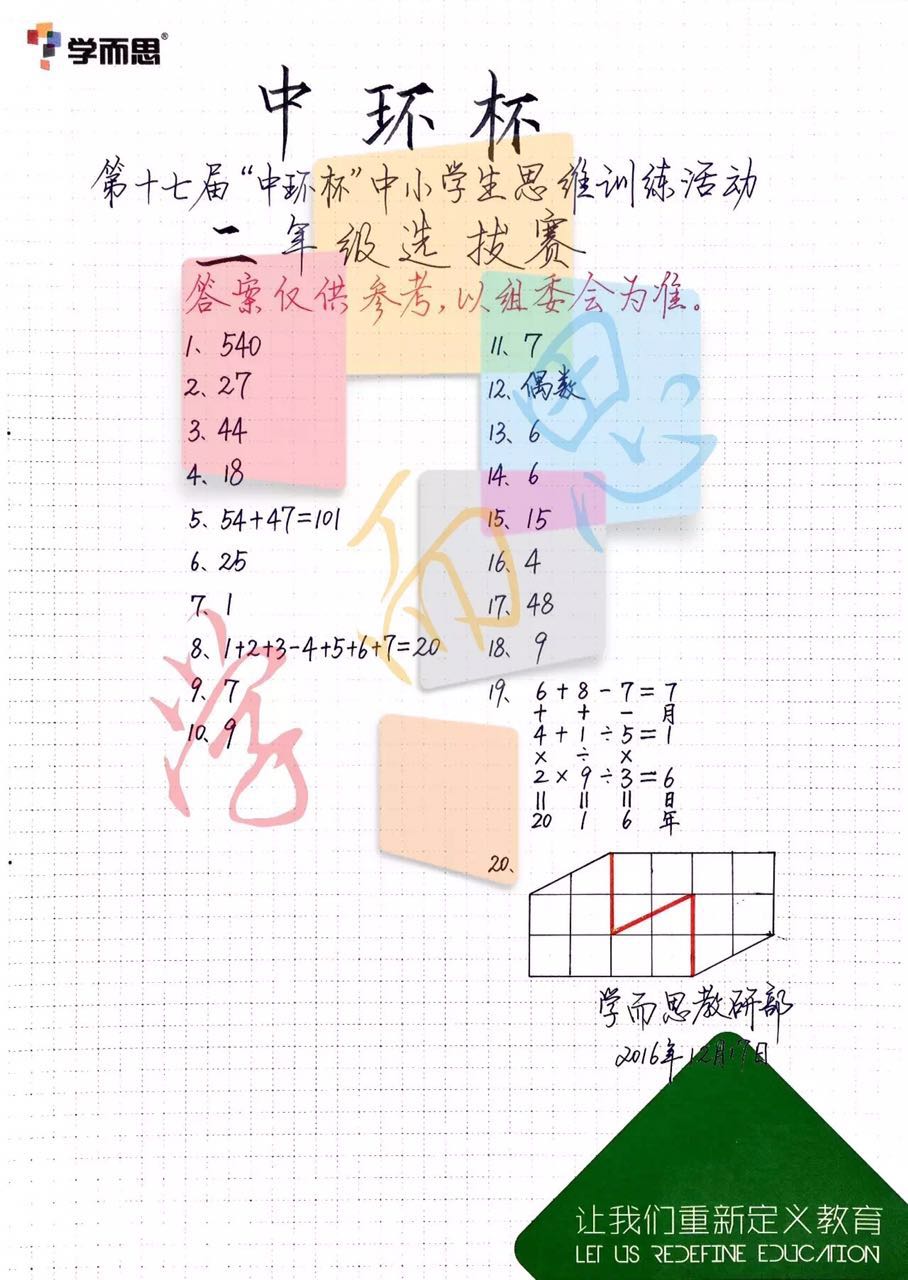 学而思®
中环杯
第十七届“中环杯”中小学生思维训练活动
二年级选拔赛
答案仅供参考,以组委会为准。
1、540
2、27
3、44
4、18
5、54+47=101
6、25
7、1
8、1+2+3-4+5+6+7=20
9、7
10、9
11、7
12、偶数
13、6
14、6
15、15
16、4
17、48
18、9
19、6+8-7=7
+ + - 月
4+1÷5=1
× ÷ ×
2×9÷3=6
|| || || 日
20 1 6 年
20、
学而思
学而思教研部
2016年12月17日
让我们重新定义教育
LET US REDEFINE EDUCATION